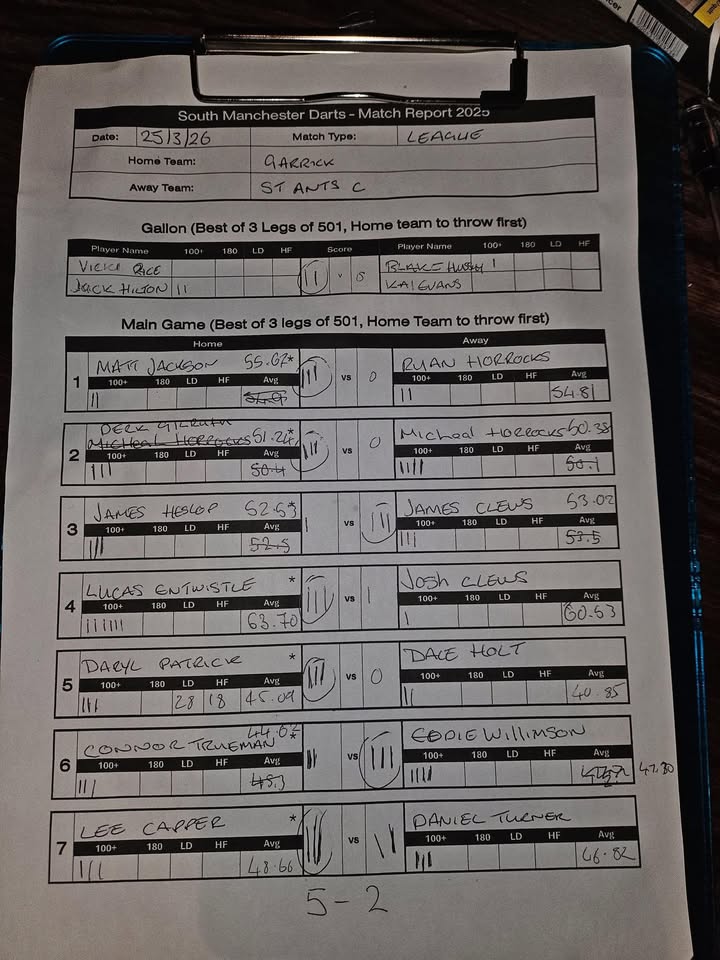 South Manchester Darts - Match Report 2025
Date: 25/3/26 Match Type: LEAGUE
Home Team: GARRICK
Away Team: ST ANTS C
Gallon (Best of 3 Legs of 501, Home team to throw first)
Player Name 100+ 180 LD HF Score Player Name 100+ 180 LD HF
VICKI RICE II v BLAKE HUSH I
JACK HILTON II KAI EVANS
Main Game (Best of 3 legs of 501, Home Team to throw first)
Home Away
1 MATT JACKSON 55.67* III vs 0 RYAN HORROCKS
100+ 180 LD HF Avg 100+ 180 LD HF Avg
II II 54.81
2 MICHEAL HORROCKS 51.24* III vs 0 Micheal HORROCKS 50.38
100+ 180 LD HF Avg 100+ 180 LD HF Avg
III 50.4 IIIII 50.1
3 JAMES HESLOP 52.53* I vs III JAMES CLEWS 53.02
100+ 180 LD HF Avg 100+ 180 LD HF Avg
III 52.5 III 53.5
4 LUCAS ENTWISTLE * III vs I JOSH CLEWS
100+ 180 LD HF Avg 100+ 180 LD HF Avg
IIIIIII 63.70 I 60.53
5 DARYL PATRICK * III vs 0 DALE HOLT
100+ 180 LD HF Avg 100+ 180 LD HF Avg
III 28 18 45.09 II 40.85
6 CONNOR TRUEMAN * II vs III EDDIE WILLIMSON
100+ 180 LD HF Avg 100+ 180 LD HF Avg
III 45.3 IIII 47.80
7 LEE CAPPER * III vs II DANIEL TURNER
100+ 180 LD HF Avg 100+ 180 LD HF Avg
III 48.66 III 46.82
5-2